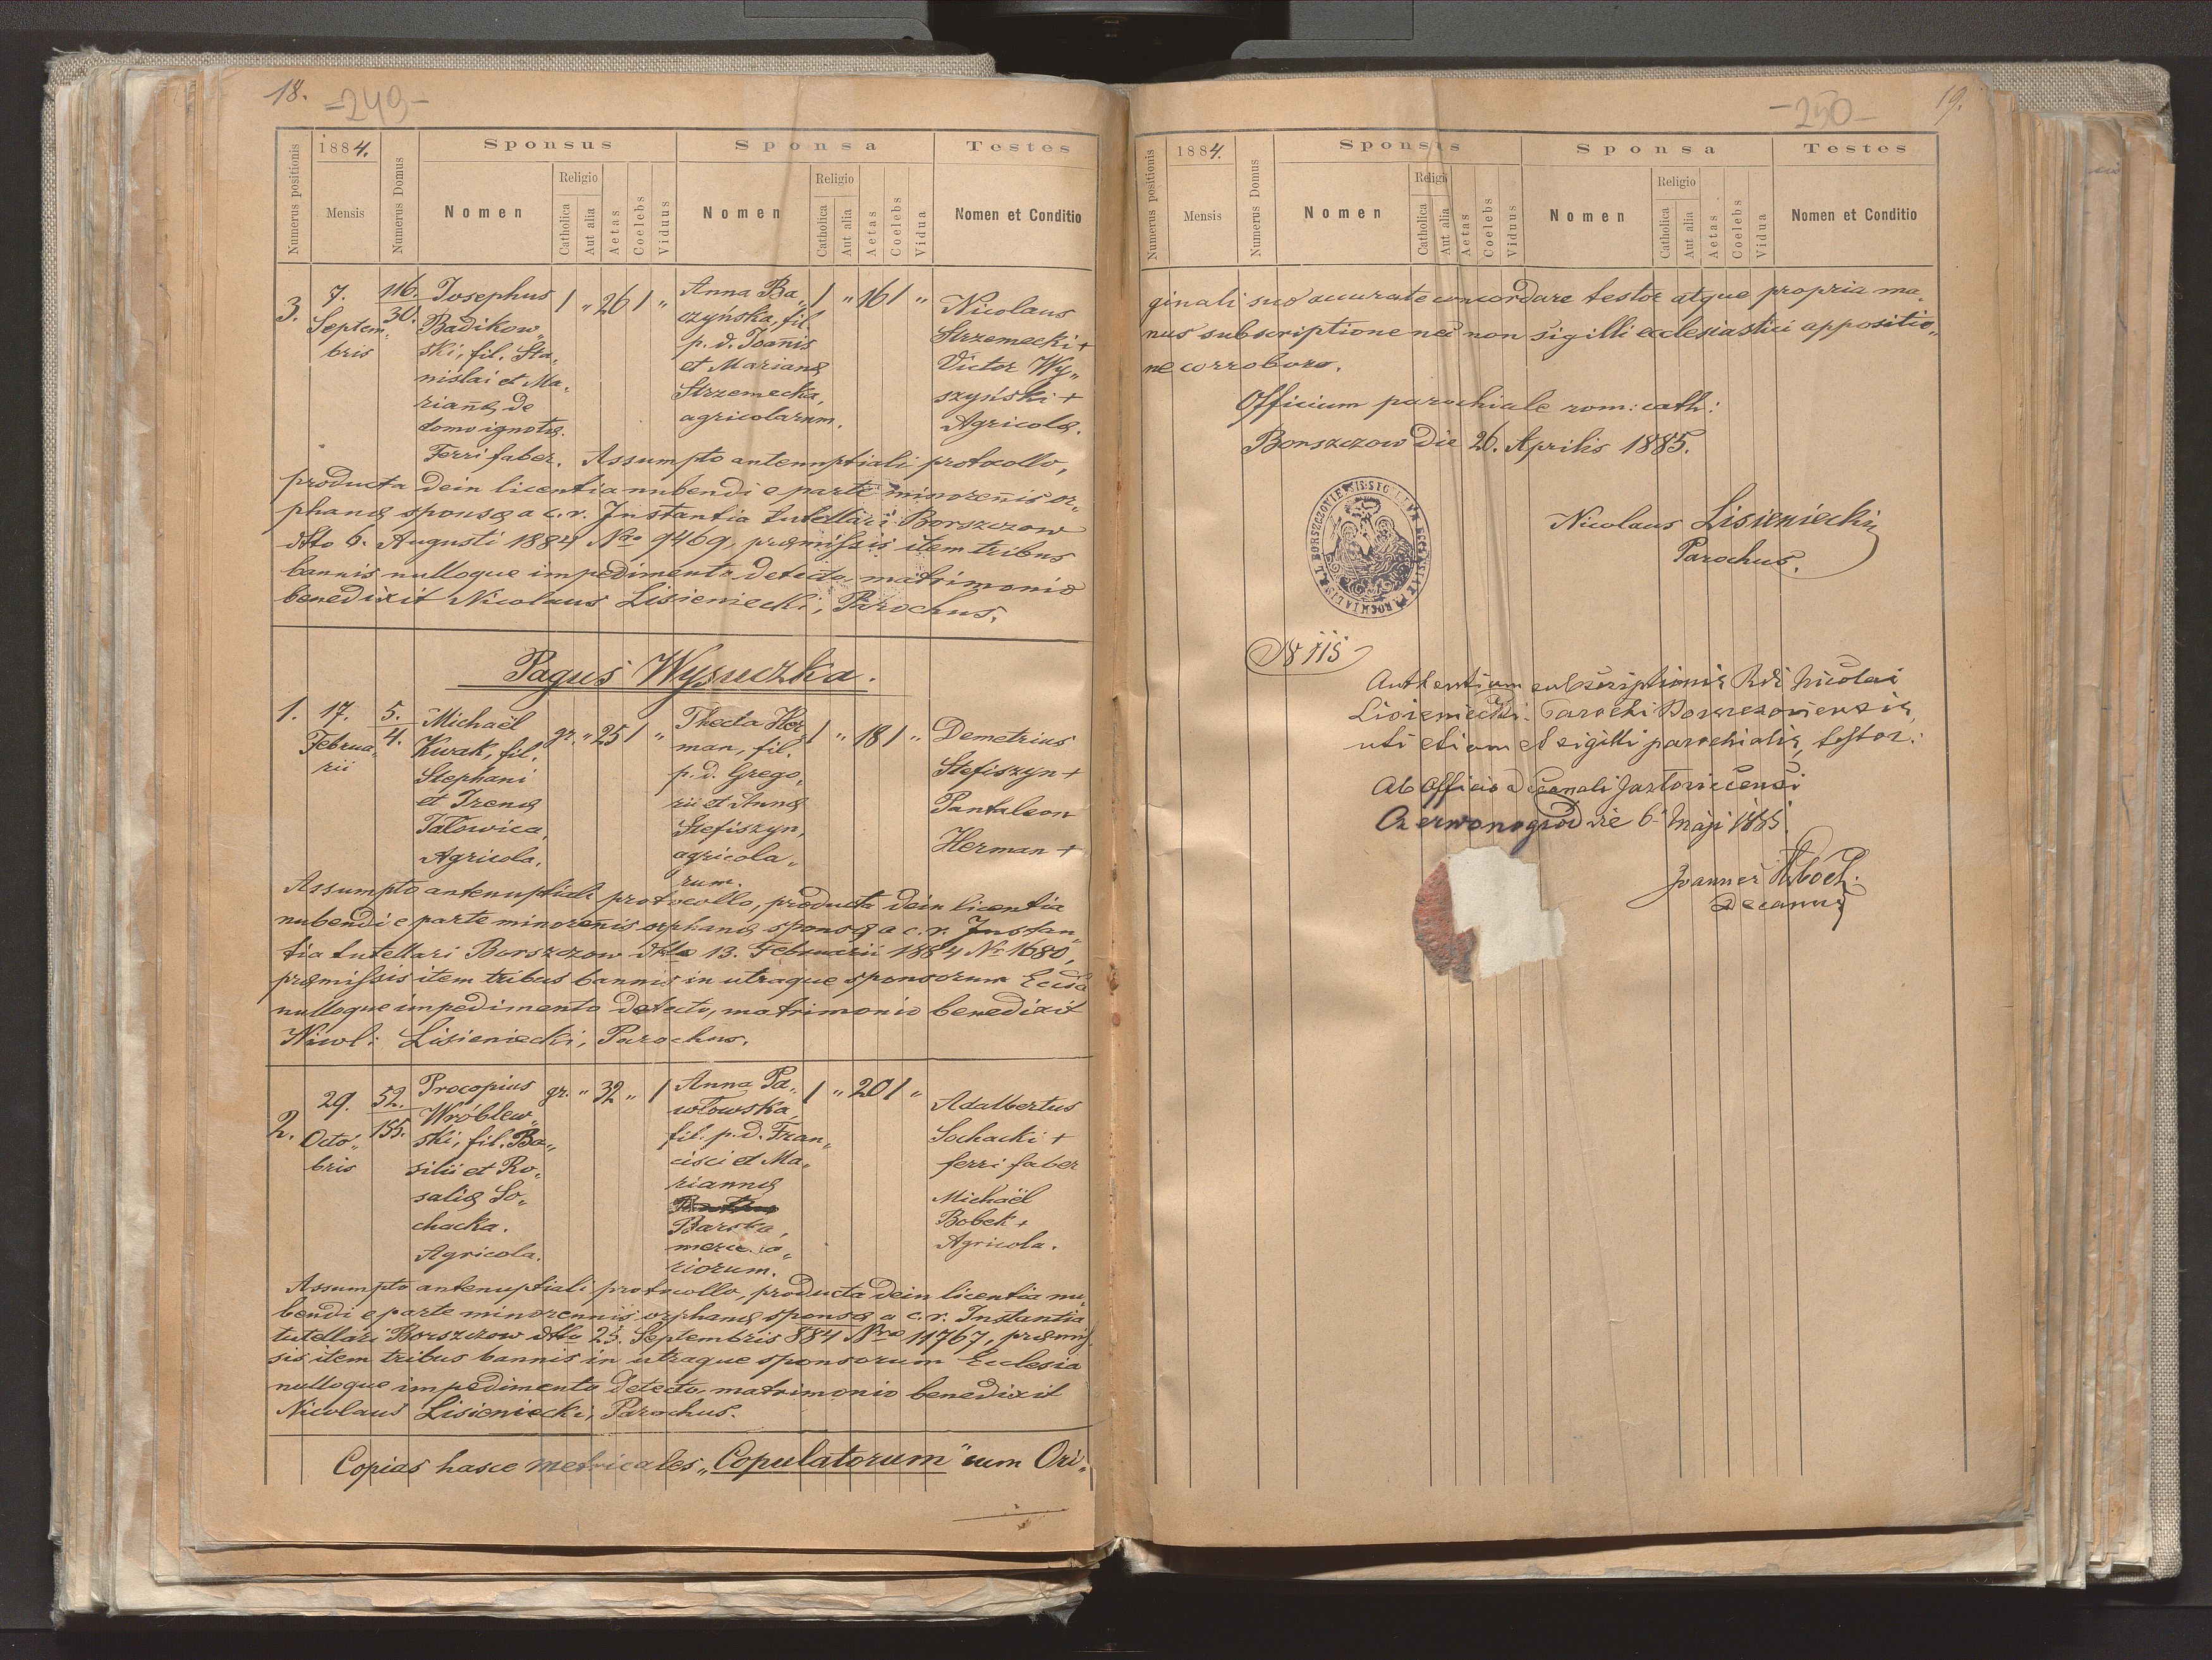 18.
-249-
Numerus positionis
1884.
Mensis
Numerus Domus
Sponsus
Nomen
Religio
Catholica
Aut alia
Aetas
Coelebs
Viduus
Sponsa
Nomen
Religio
Catholica
Aut alia
Aetas
Coelebs
Vidua
Testes
Nomen et Conditio
3.
7.
Septem„
bris
116.
30.
Josephus
Badikow„
ski, fil. Sta„
nislai et Ma„
riañæ de
domo ignotæ.
Ferri faber.
1 „ 26 1 „
Anna Ba„
czyńska, fil.
p. d. Joañis
et Marianæ
Strzemecka,
agricolarum.
1 „ 16 1 „
Nicolaus
Strzemecki +
Victor Wy„
szyński +
Agricolæ.
Assumpto antenuptiali protocollo,
producta dein licentia nubendi e parte minoreñis or„
phanæ sponsæ a c. r. Instantia tutellari Borszczow
ddto 6. Augusti 1884 Nro 9469, præmissis item tribus
bannis nulloque impedimento detecto, matrimonio
benedixit Nicolaus Lisieniecki, Parochus.
Pagus Wysuczka.
1.
17.
Februa„
rii
5.
4.
Michaël
Kwak, fil.
Stephani
et Irenæ
Tatowica,
Agricola.
gr. „ 25 1 „
Thecla Her„
man, fil.
p. d. Grego„
rii et Annæ
Stefiszyn,
agricola„
rum.
1 „ 18 1 „
Demetrius
Stefiszyn +
Pantaleon
Herman +
Assumpto antenuptiali protocollo, producta dein licentia
nubendi e parte minoreñis orphanæ sponsæ a c. r. Instan„
tia tutellari Borszczow ddto 13. Februarii 1884 Nr 1680,
præmissis item tribus bannis in utraque sponsorum Eccla
nulloque impedimento detecto, matrimonio benedixit
Nicol: Lisieniecki, Parochus.
2.
29.
Octo„
bris
52.
155.
Procopius
Wróblew„
ski, fil. Ba„
silii et Ro„
saliæ So„
chacka.
Agricola.
gr. „ 32 „ 1
Anna Pa„
włowska,
fil. p. d. Fran„
cisci et Ma„
riannæ
Barska,
mercena„
riorum.
1 „ 20 1 „
Adalbertus
Sochacki +
ferri faber
Michaël
Bobek +
Agricola.
Assumpto antenuptiali protocollo, producta dein licentia nu„
bendi e parte minorennis orphanæ sponsæ a c. r. Instantia
tutellari Borszczow ddto 25. Septembris 884 Nro 11767, præmis„
sis item tribus bannis in utraque sponsorum Ecclesia
nulloque impedimento detecto, matrimonio benedixit
Nicolaus Lisieniecki, Parochus.
Copias hasce metricales „Copulatorum" cum Ori„
-250-
19.
Numerus positionis
1884.
Mensis
Numerus Domus
Sponsus
Nomen
Religio
Catholica
Aut alia
Aetas
Coelebs
Viduus
Sponsa
Nomen
Religio
Catholica
Aut alia
Aetas
Coelebs
Vidua
Testes
Nomen et Conditio
ginali suo accurate concordare testor atque propria ma„
nus subscriptione nec non sigilli ecclesiastici appositio„
ne corroboro.
Officium parochiale rom: cath:
Borszczow die 26. Aprilis 1885.
Nicolaus Lisieniecki
Parochus.
SIGILLUM ECCLESIAE PAROCHIALIS R. L. BORSZCZOVIENSIS
N 115
Authentiam subscriptionis Rdi Nicolai
Lisieniecki Parochi Borszczoviensis,
uti etiam et sigilli parochialis, testor.
Ab Officio Decanali Jazłovicensi
Czerwonogrod die 6 Maji 1885.
Joannes
Decanus